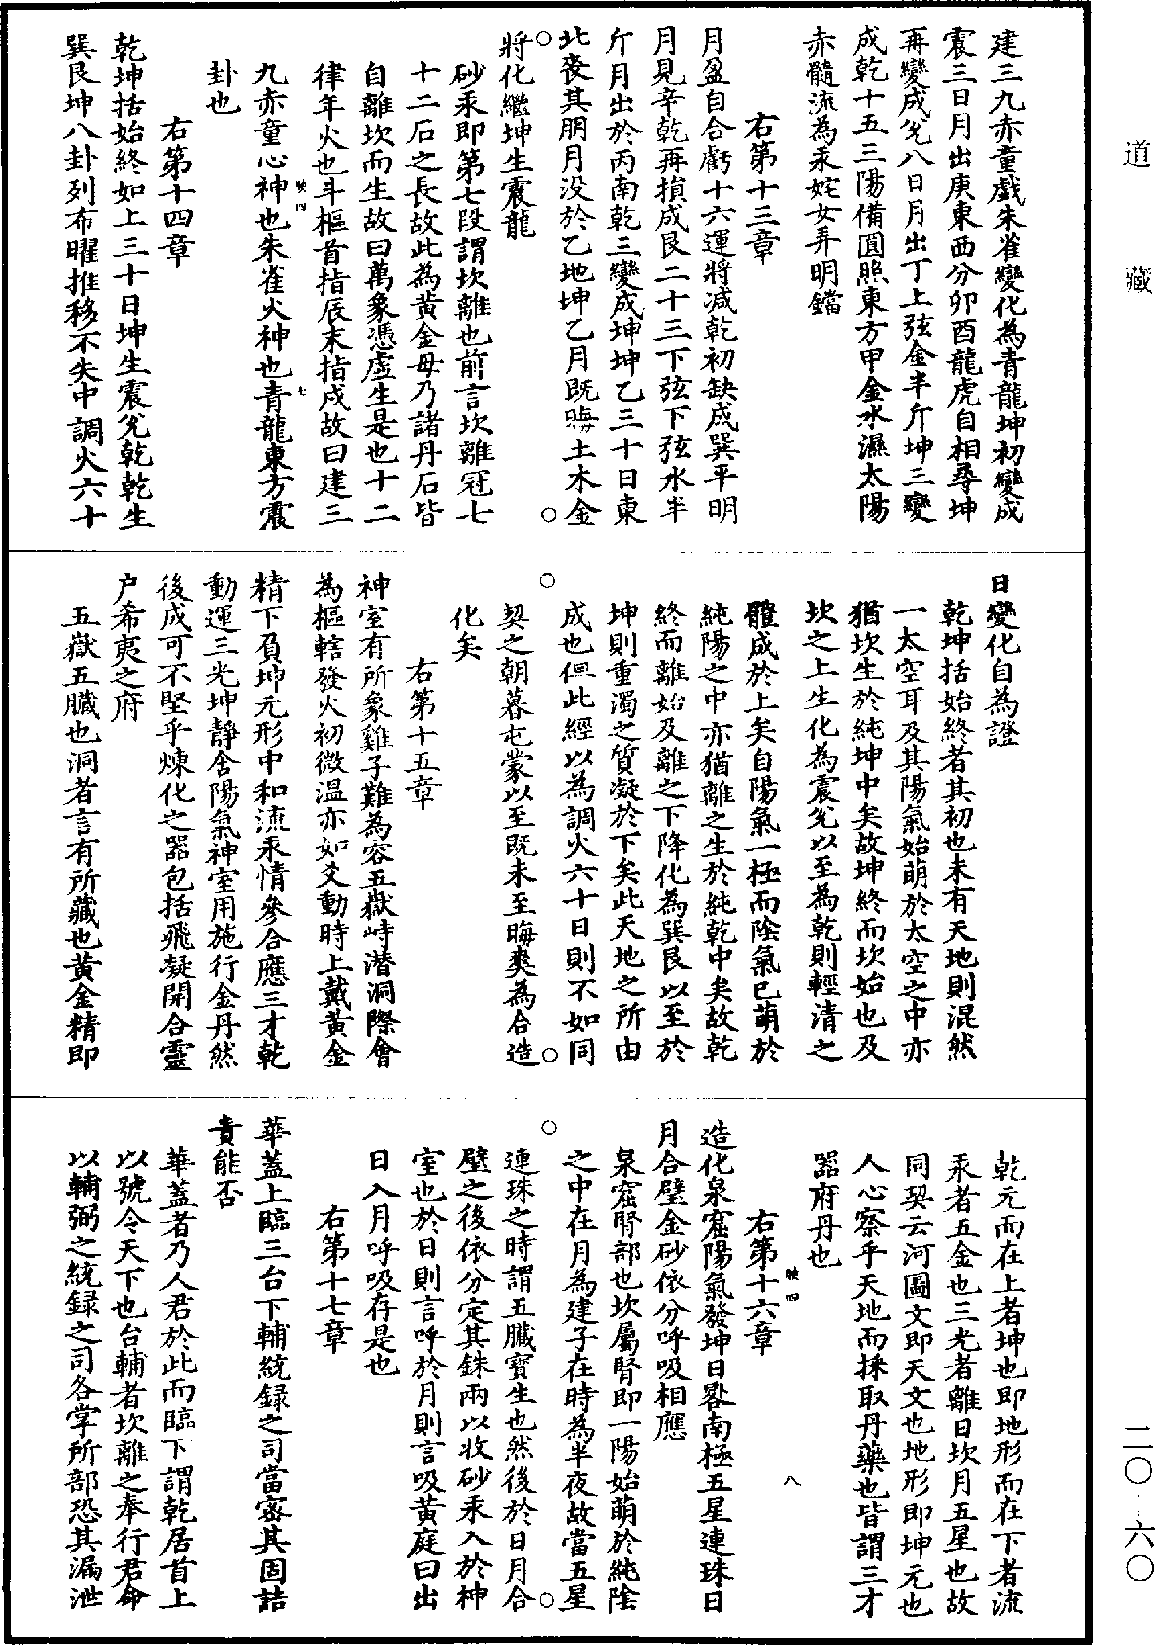 道藏
二〇·六〇
建三九赤童戲朱雀變化為青龍坤初變成
震三日月出庚東西分卯酉龍虎自相尋坤
再變成兌八日月出丁上弦金半斤坤三變
成乾十五三陽備圓照東方甲金水濕太陽
赤髓流為汞姹女弄明鐺
右第十三章
月盈自合虧十六運將減乾初缺成巽平明
月見辛乾再損成艮二十三下弦下弦水半
斤月出於丙南乾三變成坤坤乙三十日東
北喪其朋月没於乙地坤乙月既晦土木金
將化繼坤生震龍
砂汞即第七段謂坎離也前言坎離冠七
十二石之長故此為黃金母乃諸丹石皆
自離坎而生故曰萬象憑虛生是也十二
律年火也斗樞首指辰末指戌故曰建三
九赤童心神也朱雀火神也青龍東方震
卦也
右第十四章
乾坤括始終如上三十日坤生震兌乾乾生
巽艮坤八卦列布曜推移不失中調火六十
日變化自為證
乾坤括始終者其初也未有天地則混然
一太空耳及其陽氣始萌於太空之中亦
猶坎生於純坤中矣故坤終而坎始也及
坎之上生化為震兌以至為乾則輕清之
體成於上矣自陽氣一極而陰氣已萌於
純陽之中亦猶離之生於純乾中矣故乾
終而離始及離之下降化為巽艮以至於
坤則重濁之質凝於下矣此天地之所由
成也但此經以為調火六十日則不如同
契之朝暮屯蒙以至既未至晦爽為合造
化矣
右第十五章
神室有所象雞子難為容五嶽峙潛洞際會
為樞轄發火初微溫亦如爻動時上戴黃金
精下負坤元形中和流汞情參合應三才乾
動運三光坤靜含陽氣神室用施行金丹然
後成可不堅乎煉化之器包括飛凝開合靈
户希夷之府
五嶽五臟也洞者言有所藏也黃金精即
乾元而在上者坤也即地形而在下者流
汞者五金也三光者離日坎月五星也故
同契云河圖文即天文也地形即坤元也
人心察乎天地而採取丹藥也皆謂三才
器府丹也
右第十六章
造化泉窟陽氣發坤日晷南極五星連珠日
月合璧金砂依分呼吸相應
泉窟腎部也坎屬腎即一陽始萌於純陰
之中在月為建子在時為半夜故當五星
連珠之時謂五臟寶生也然後於日月合
璧之後依分定其銖兩以收砂汞入於神
室也於日則言呼於月則言吸黃庭曰出
日入月呼吸存是也
右第十七章
華蓋上臨三台下輔統錄之司當密其固詰
責能否
華蓋者乃人君於此而臨下謂乾居首上
以號令天下也台輔者坎離之奉行君命
以輔弼之統錄之司各掌所部恐其漏泄